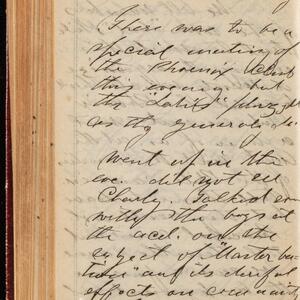 There was to be a
special meeting of
the Phoenix Club
this evening but
the "Ladies"
as they generally do
Went up in the
eve. did not see
Charly. Talked some
with the boys at
the acad. on the
subject of "Master ba-
tion" and its dreadful
effects on community